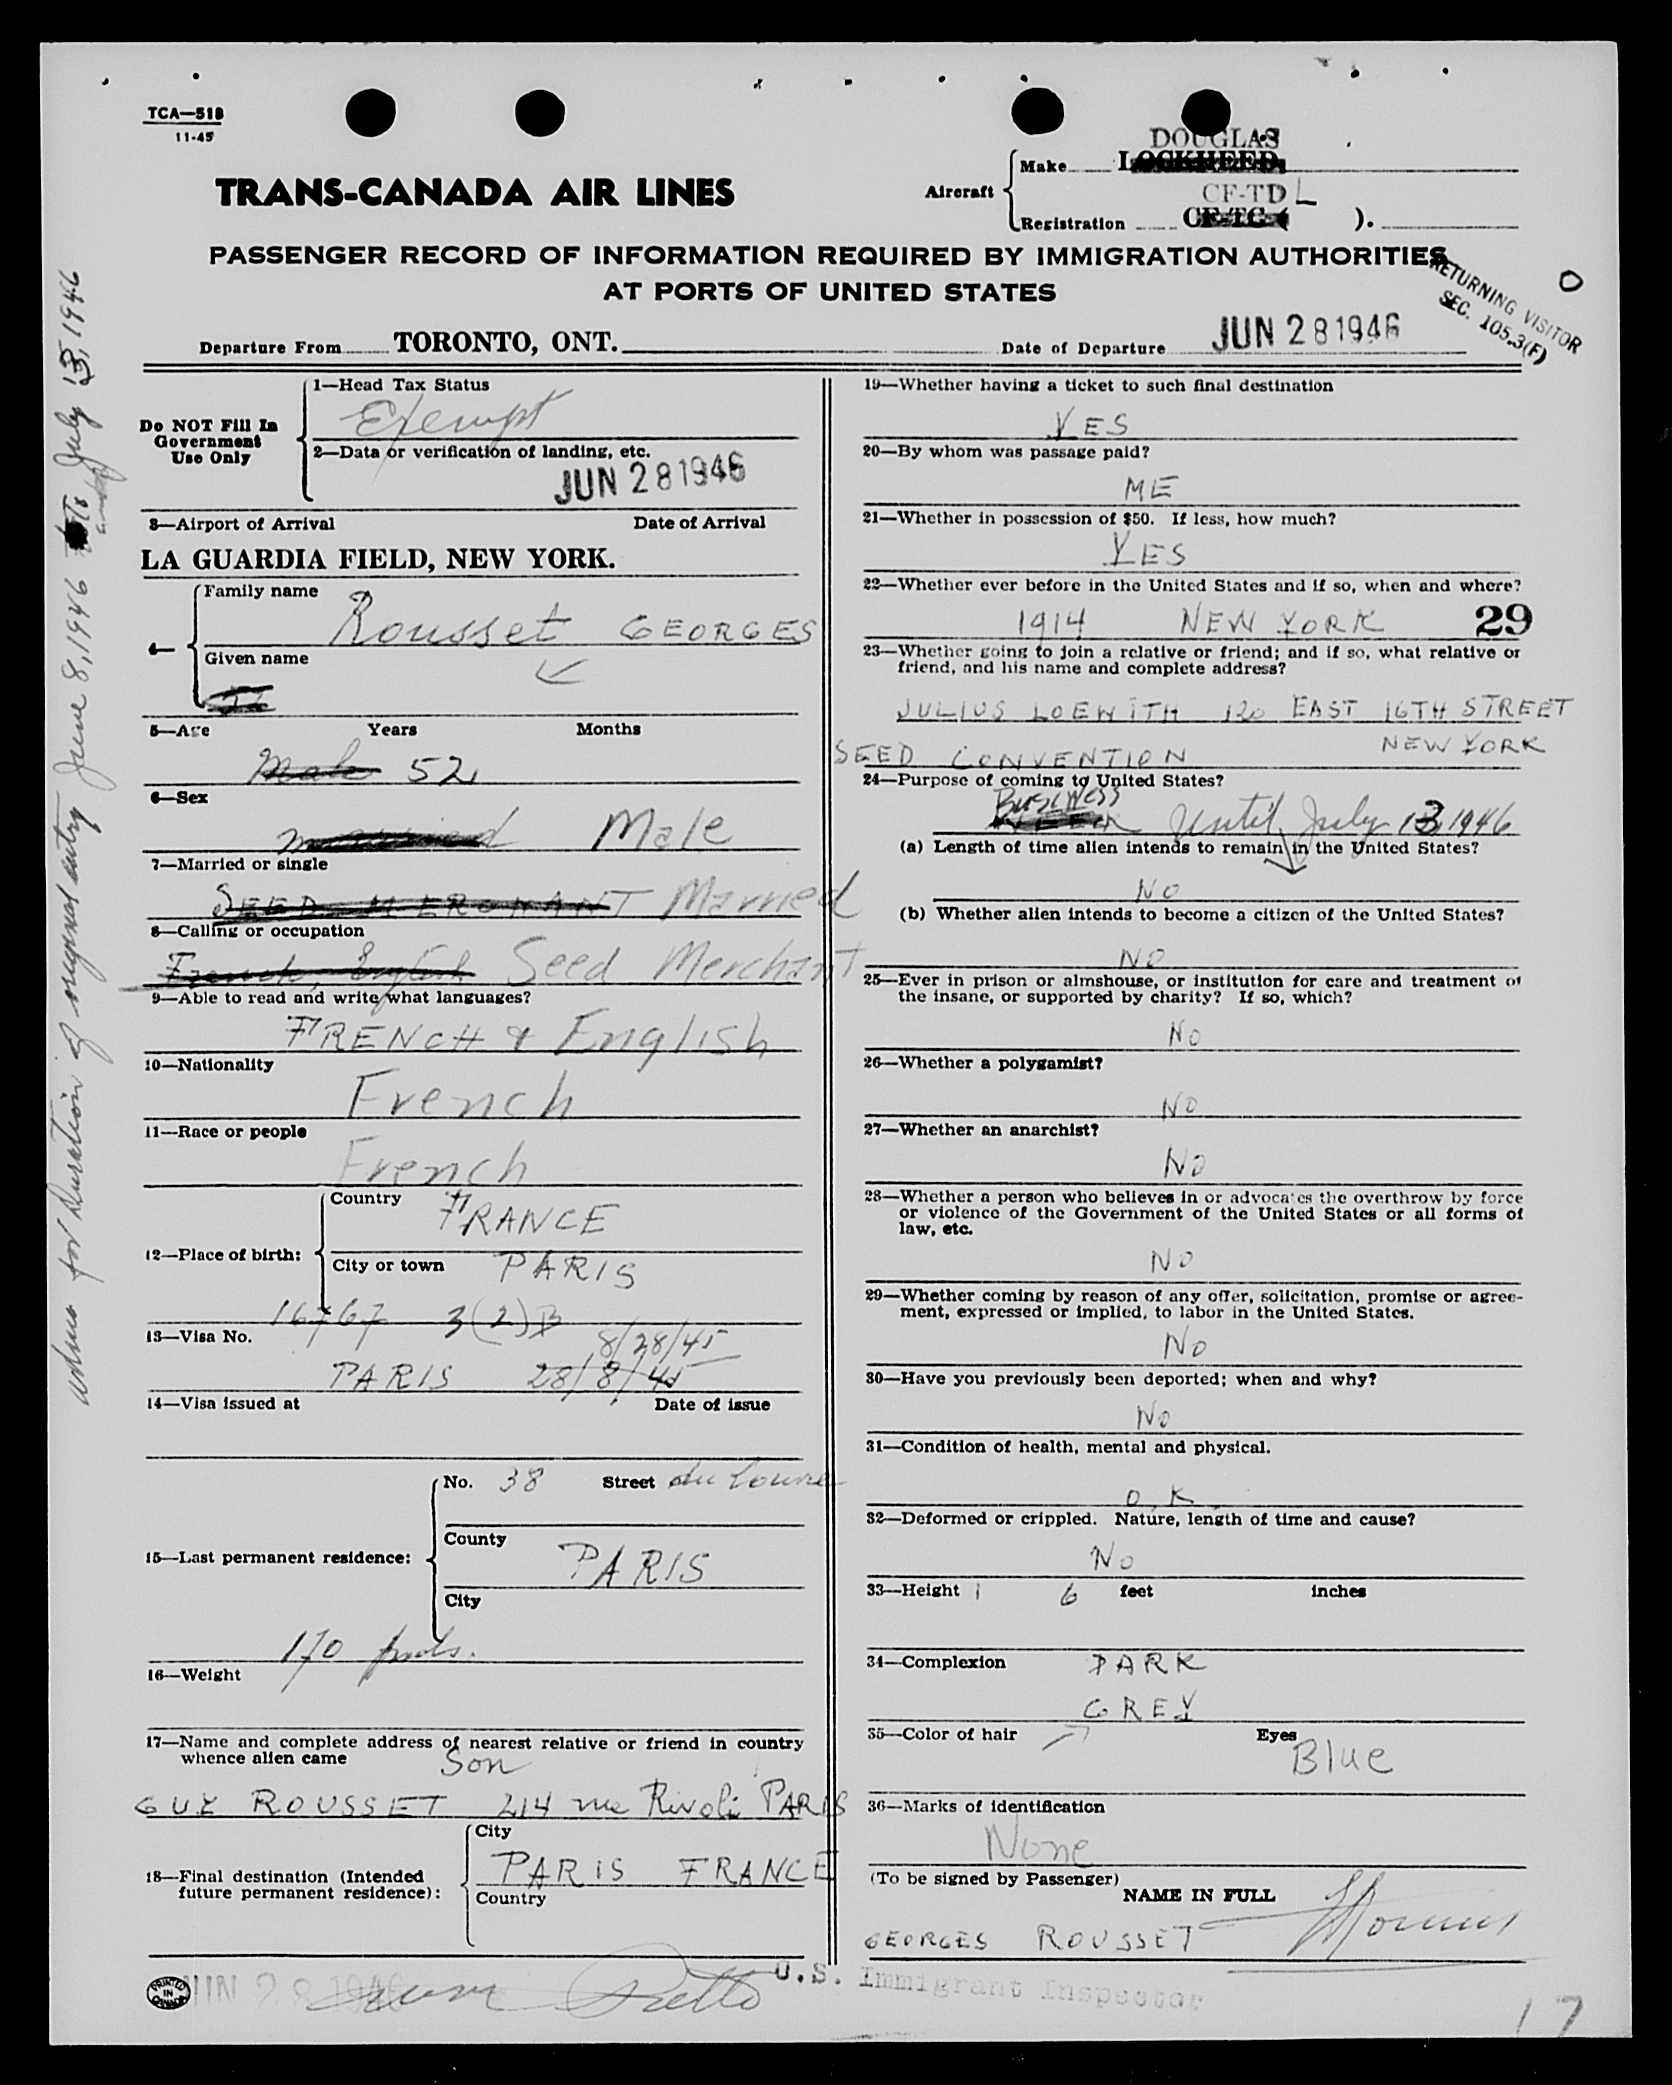 TCA—518
11-45
DOUGLAS
Aircraft
Make
LOCKHEED
TRANS-CANADA AIR LINES
CF-TDL
Registration CF-TC- ).
PASSENGER RECORD OF INFORMATION REQUIRED BY IMMIGRATION AUTHORITIES
AT PORTS OF UNITED STATES
RETURNING VISITOR
SEC. 105.3(F)
O
Departure From TORONTO, ONT.
Date of Departure JUN 28 1946
Do NOT Fill In
Government
Use Only
1—Head Tax Status
Exempt
2—Data or verification of landing, etc.
JUN 28 1946
3—Airport of Arrival Date of Arrival
LA GUARDIA FIELD, NEW YORK.
4—
Family name
Rousset GEORGES
Given name
5—Age Years Months
Male 52
6—Sex
married Male
7—Married or single
SEED MERCHANT Married
8—Calling or occupation
French, English Seed Merchant
9—Able to read and write what languages?
FRENCH & English
10—Nationality
French
11—Race or people
French
12—Place of birth:
Country
FRANCE
City or town PARIS
16767 3(2)B
13—Visa No.
8/28/45
PARIS 28/8/45
14—Visa issued at Date of issue
15—Last permanent residence:
No. 38 Street du Louvre
County
PARIS
City
170 pnds.
16—Weight
17—Name and complete address of nearest relative or friend in country
whence alien came
Son
GUY ROUSSET 214 rue Rivoli PARIS
18—Final destination (Intended
future permanent residence):
City
PARIS FRANCE
Country
19—Whether having a ticket to such final destination
YES
20—By whom was passage paid?
ME
21—Whether in possession of $50. If less, how much?
YES
22—Whether ever before in the United States and if so, when and where?
1914 NEW YORK 29
23—Whether going to join a relative or friend; and if so, what relative or
friend, and his name and complete address?
JULIUS LOEWITH 120 EAST 16TH STREET
NEW YORK
SEED CONVENTION
24—Purpose of coming to United States?
BUSINESS
Until July 13, 1946
(a) Length of time alien intends to remain in the United States?
NO
(b) Whether alien intends to become a citizen of the United States?
NO
25—Ever in prison or almshouse, or institution for care and treatment of
the insane, or supported by charity? If so, which?
NO
26—Whether a polygamist?
NO
27—Whether an anarchist?
NO
28—Whether a person who believes in or advocates the overthrow by force
or violence of the Government of the United States or all forms of
law, etc.
NO
29—Whether coming by reason of any offer, solicitation, promise or agree-
ment, expressed or implied, to labor in the United States.
NO
30—Have you previously been deported; when and why?
NO
31—Condition of health, mental and physical.
O.K.
32—Deformed or crippled. Nature, length of time and cause?
NO
33—Height 6 feet inches
34—Complexion DARK
GREY
35—Color of hair Eyes
Blue
36—Marks of identification
None
(To be signed by Passenger)
NAME IN FULL
GEORGES ROUSSET
PRINTED
IN
CANADA
JUN 28 1946
U.S. Immigrant Inspector
17
for duration of original entry June 8, 1946 to July 13, 1946